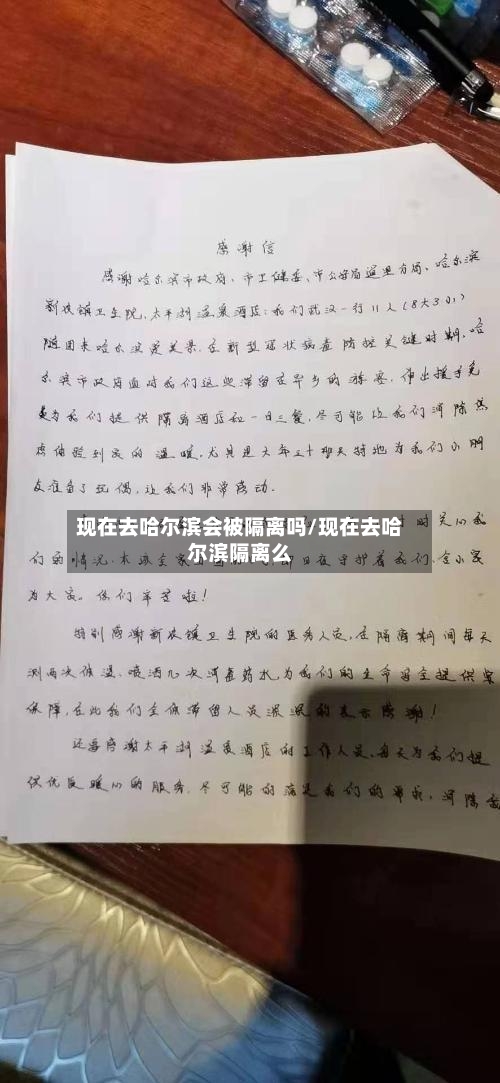 感谢信
感谢哈尔滨市政府、市卫健委、市公安局道里分局、哈尔滨
新农镇卫生院、太平湖温泉酒店:我们武汉一行11人(8大3小)
随团来哈尔滨观美景,在新型冠状病毒防控关键时期,哈
尔滨市政府面对我们这些滞留在异乡的旅客,伸出援手免
费为我们提供隔离酒店和一日三餐,尽可能让我们消除焦
虑体验到家的温暖,尤其是大年三十那天特地为我们小朋
友准备了玩偶,让我们非常感动。
时关心我
现在去哈尔滨会被隔离吗/现在去哈
尔滨隔离么
们的情况,
日夜守护着我们,舍小家
为大家。你们辛苦啦!
特别感谢新农镇卫生院的医务人员,在隔离期间每天
测两次体温、喷洒几次消毒药水,为我们的生命安全提供
保障,在此我们全体滞留人员深深的表示感谢!
还要感谢太平湖温泉酒店的工作人员,每天为我们提
供优质暖心的服务,尽可能的满足我们的需求,消除我